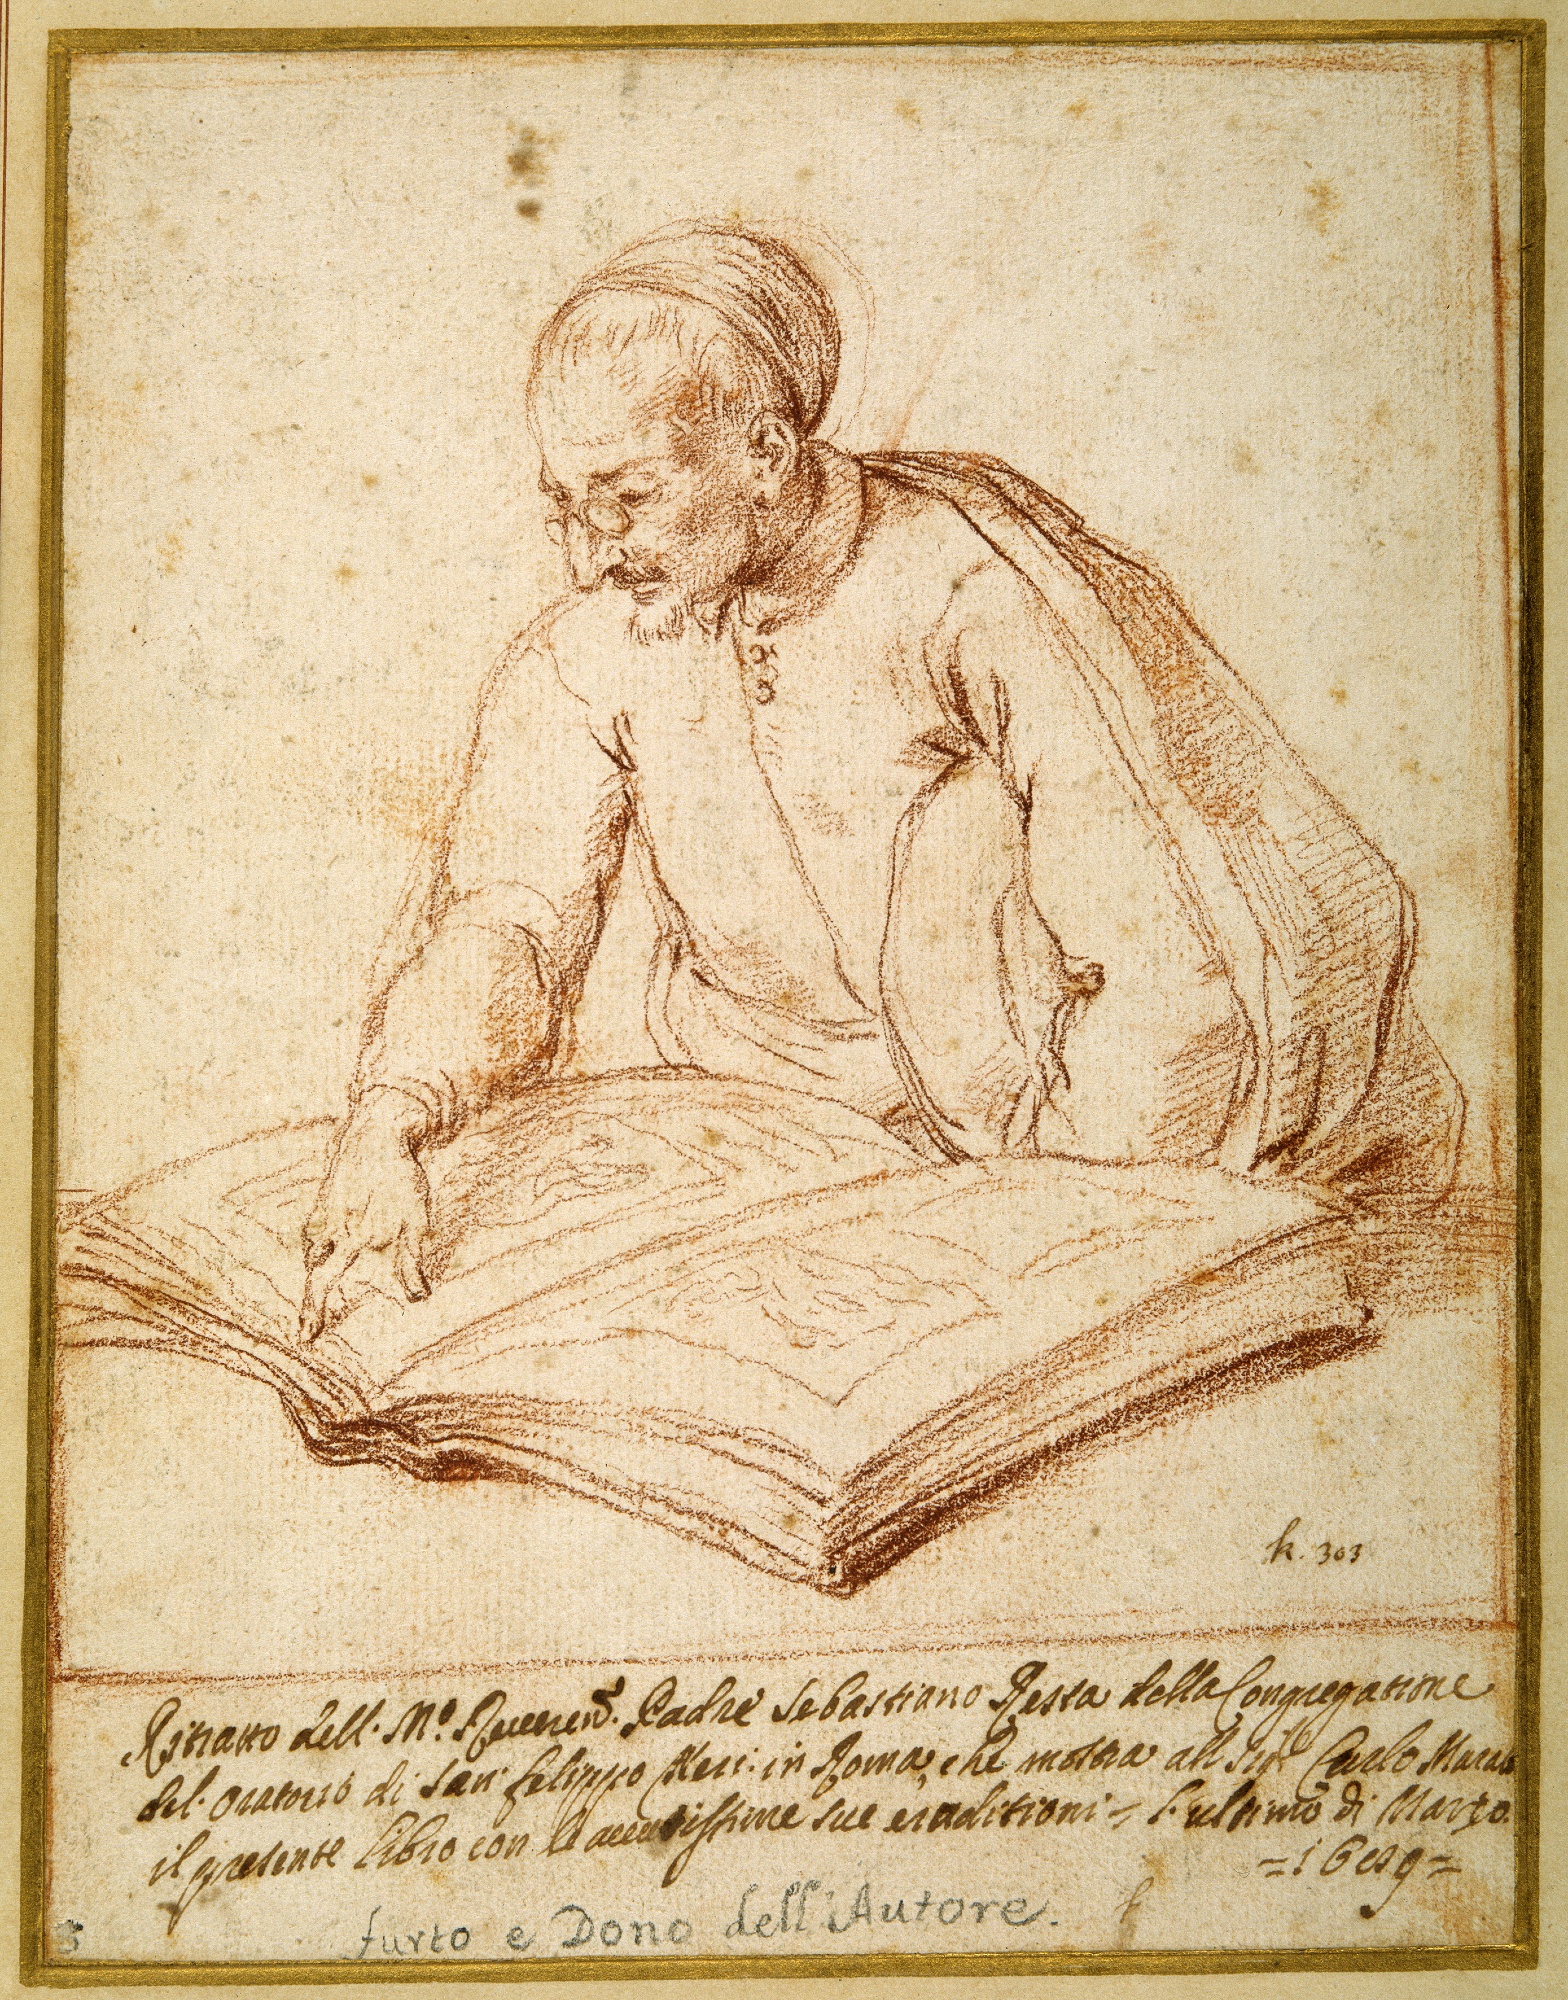 k. 303
Ritratto dell. M.º Reveren.ᵈ Padre Sebastiano Resta della Congregatione
del. oratorio di san. filippo Neri. in Roma, che mostra all sig.ʳ Carlo Marat
il presente Libro con le accuratissime sue eruditioni = L. ultimo di Marzo.
furto e Dono dell'Autore.